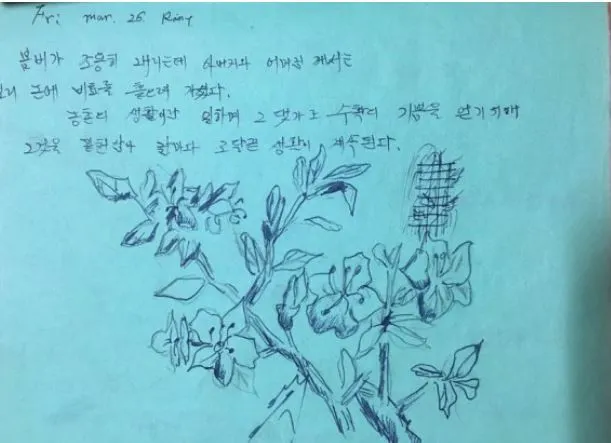 Fri mar. 26. Rainy
봄비가 조용히 내리는데 아버지와 어머님께서는
논에 비료를 뿌리러 가셨다.
농촌의 생활이란 일하며 그 댓가로 수확의 기쁨을 얻기 위해
그것을 날마다 고달픈 생활이 계속된다.